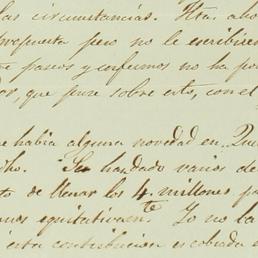 las circunstancias. Hta. aho
propuesta pero no le escribien
e paseos y confiemos no ha po
que puse sobre esto, con el
e habia alguna novedad en Qu
ho. Se han dado varios de
to de llenar los 4. millones pa
mos equitativamte. Yo no la
esta contribucion es cobrada